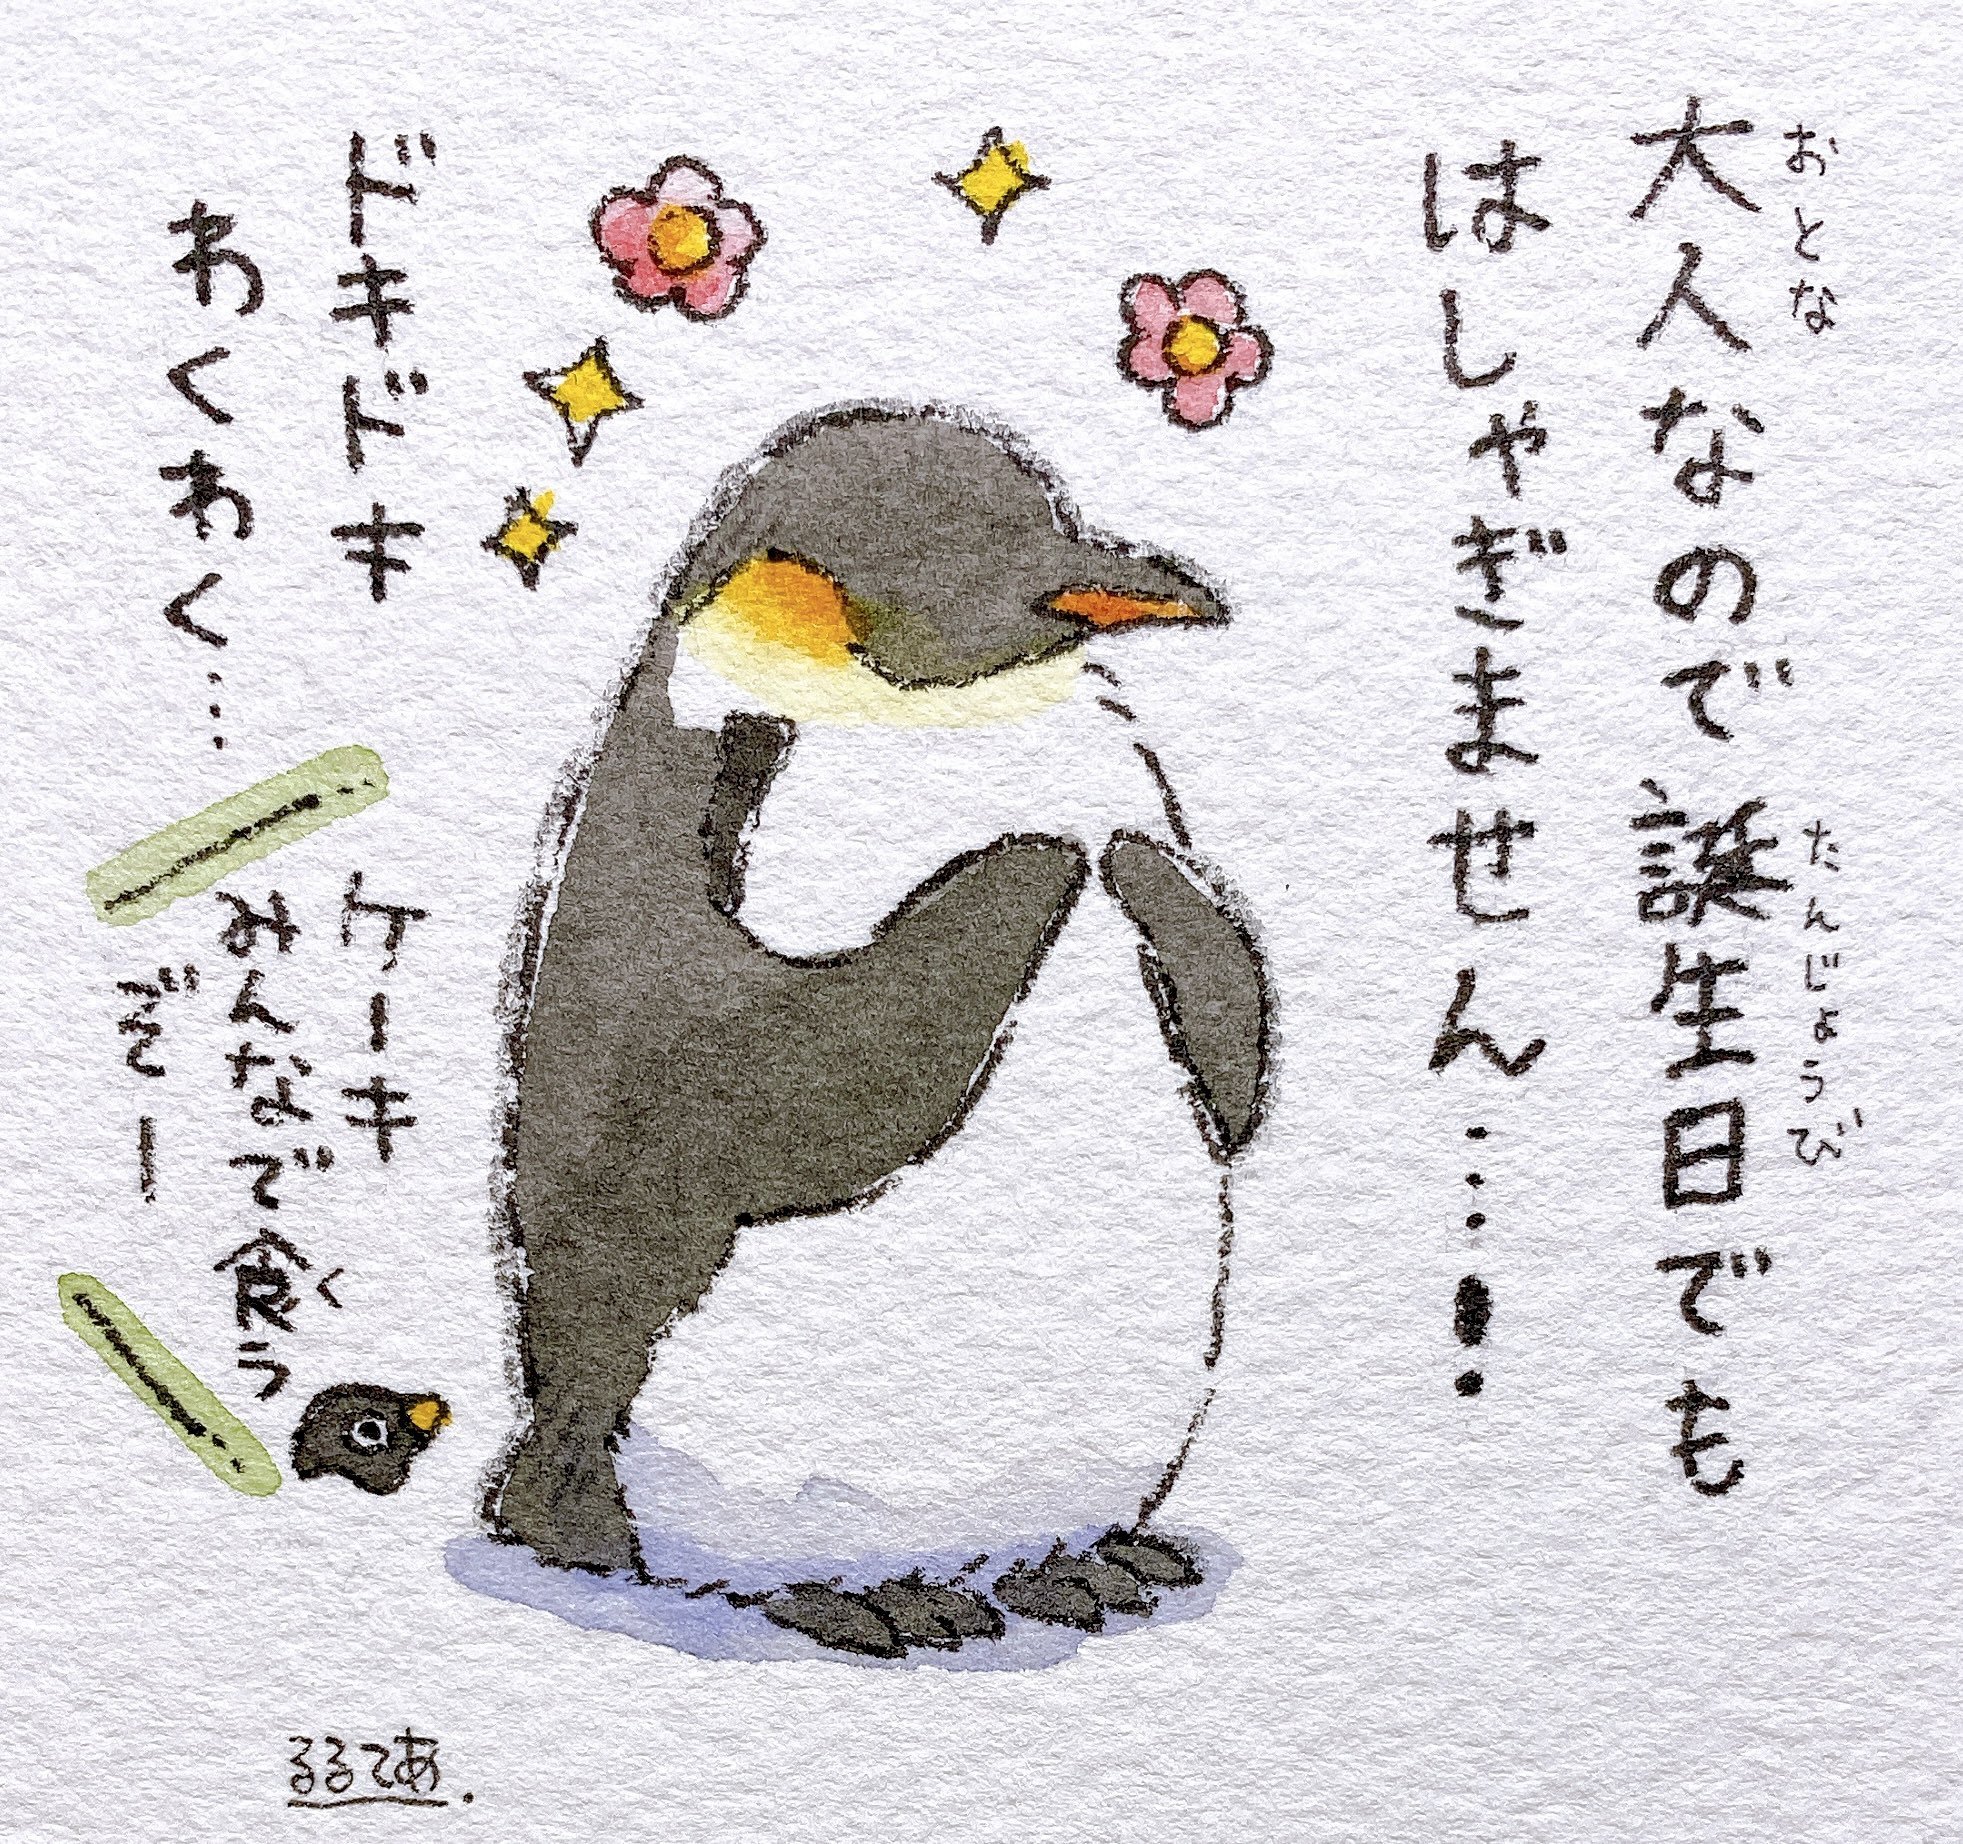 大人なので誕生日でも
おとな
たんじょうび
はしゃぎません……
ドキドキ
わくわく…
ケーキ
みんなで食う
く
ぞー
るるてあ.